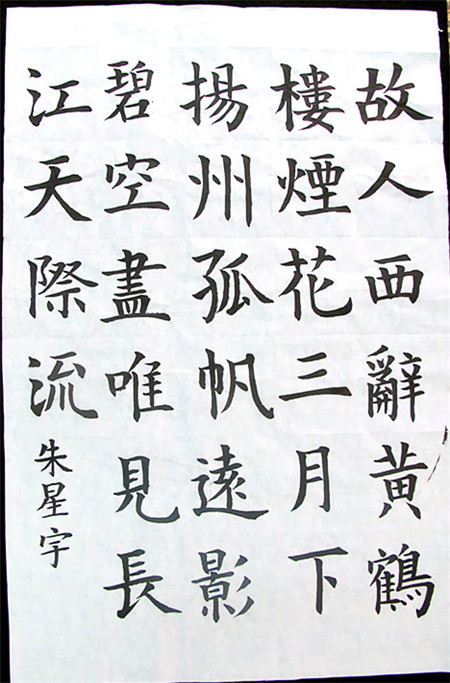 故人西辭黃鶴
樓煙花三月下
揚州孤帆遠影
碧空盡唯見長
江天際流
朱星宇